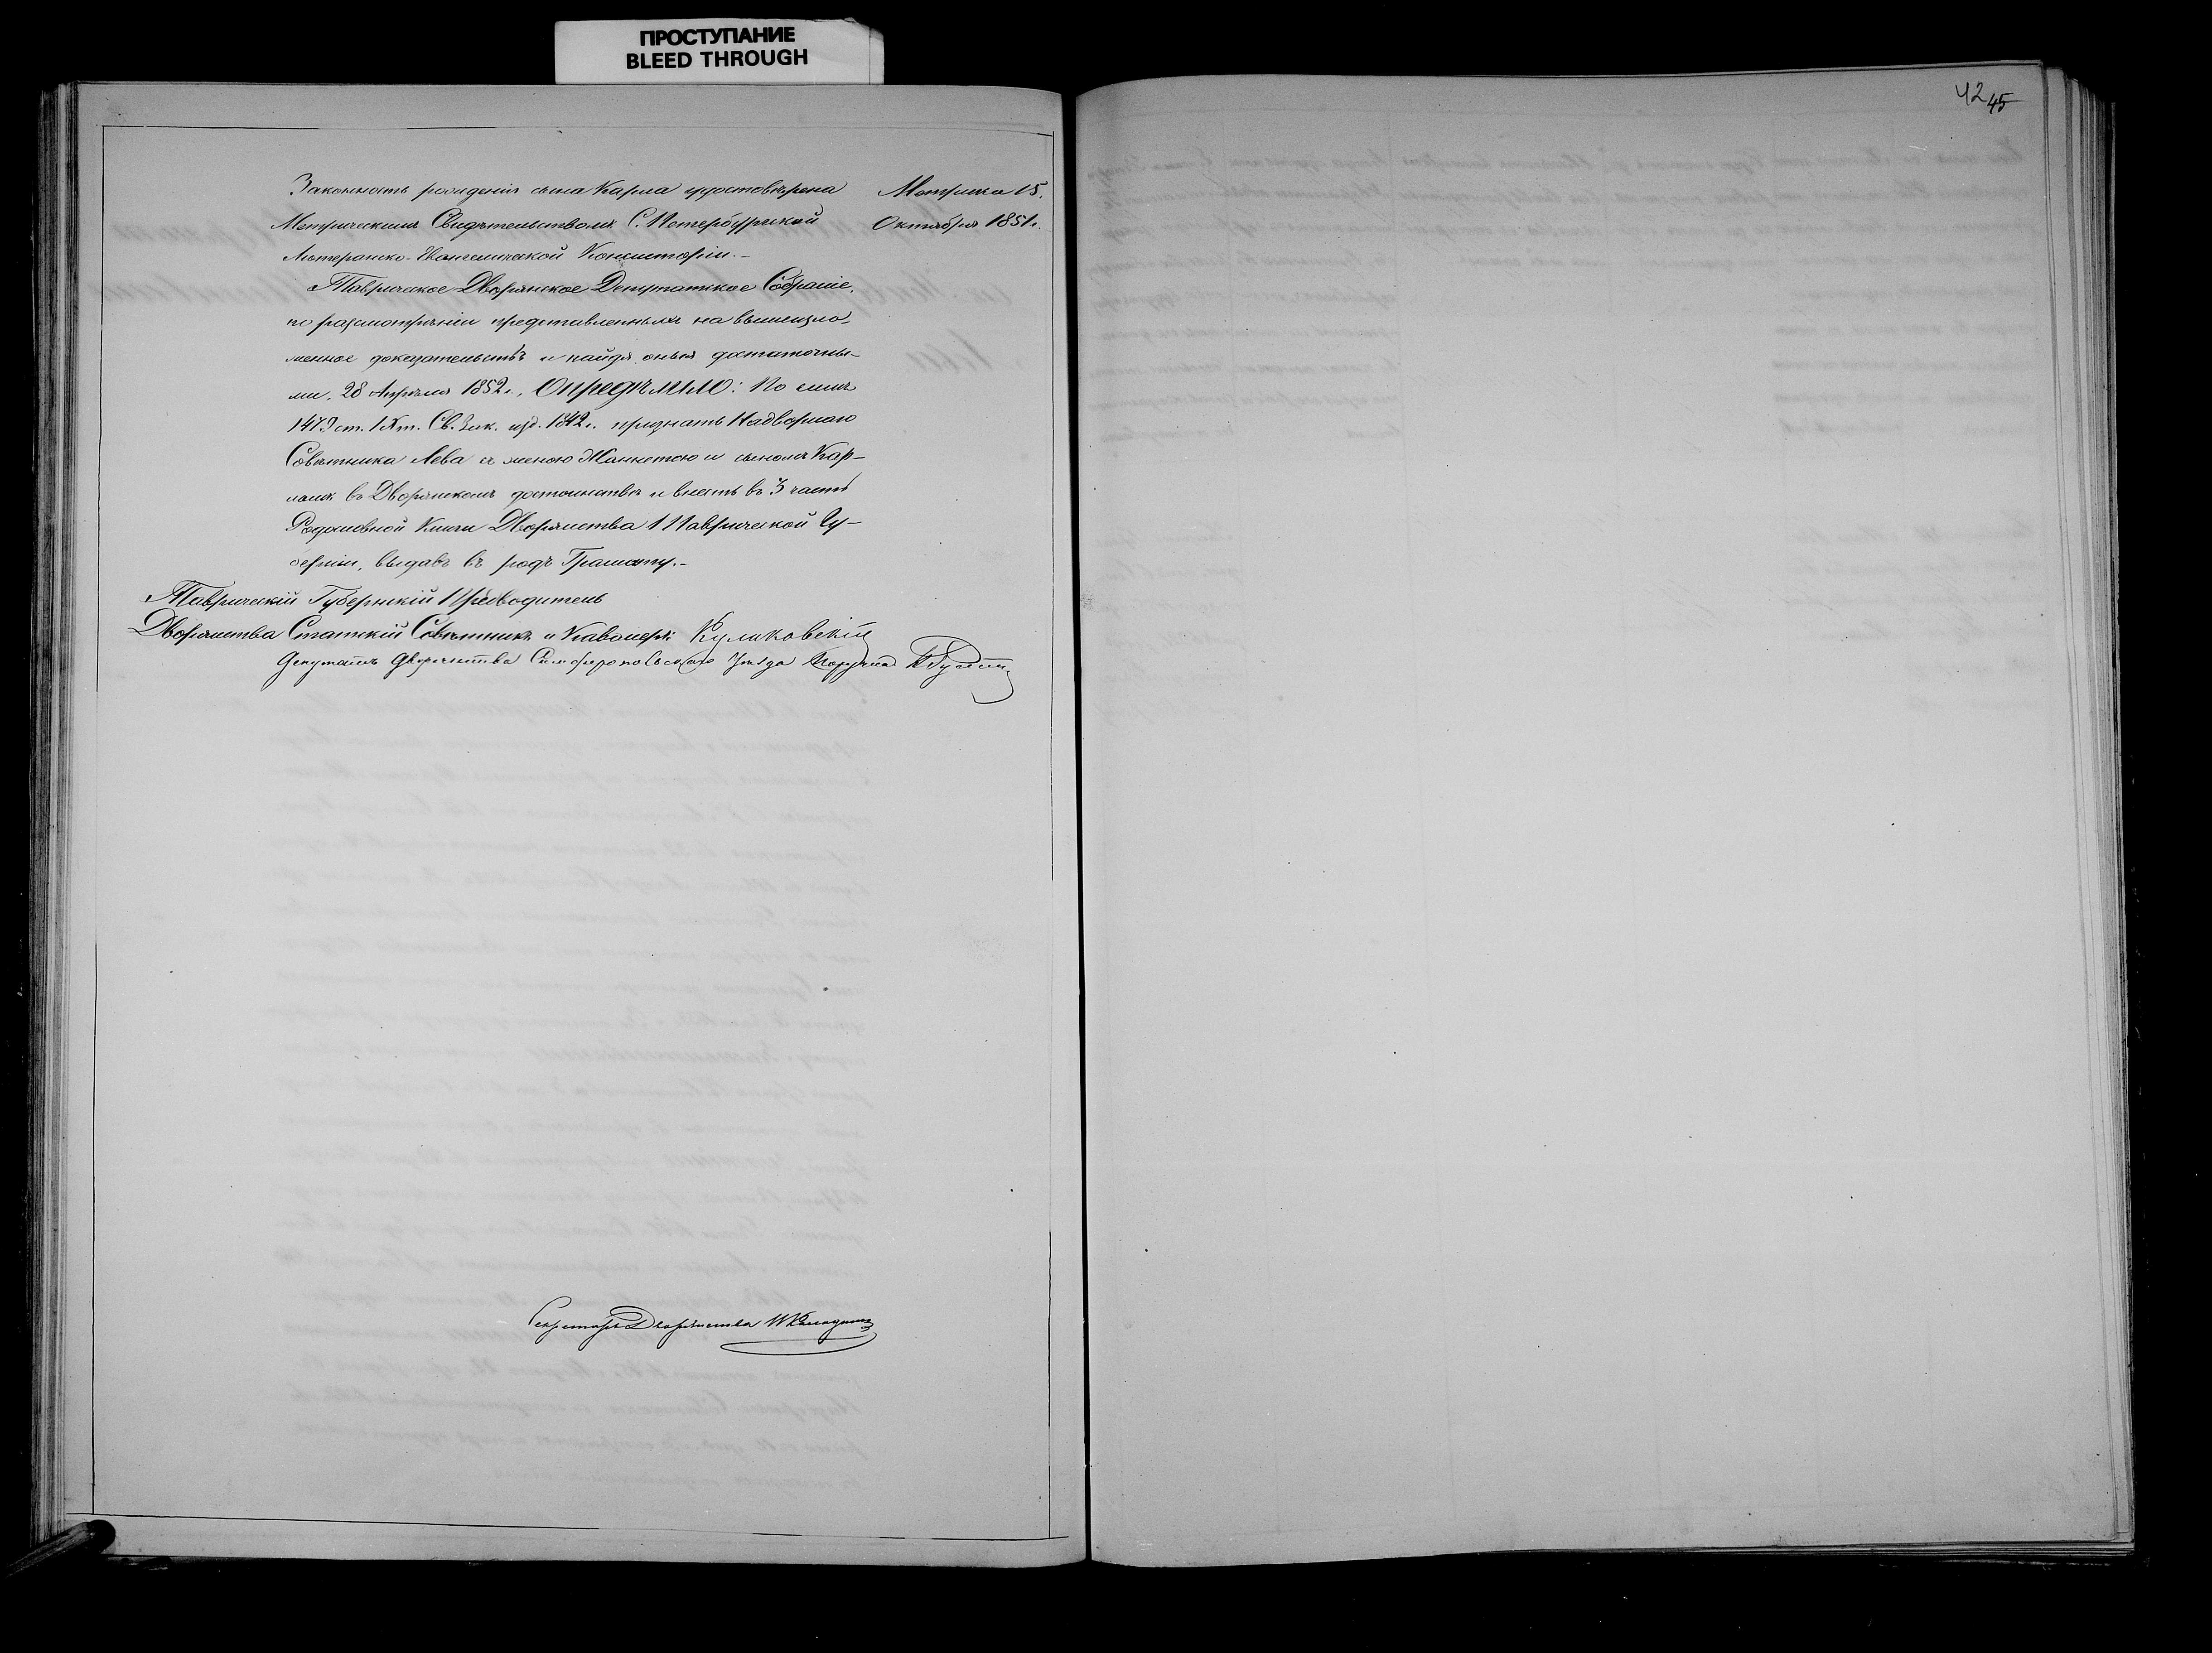 ПРОСТУПАНИЕ
BLEED THROUGH
42 45
Законность рожденія сына Карла удостовѣрена
Метрическимъ Свидѣтельствомъ С. Петербургской
Лютеранско-Евангелической Консисторіи.-
Метрика 15.
Октября 1851 г.
Таврическое Дворянское Депутатское Собраніе,
по разсмотрѣніи представленныхъ на вышеизло-
женное доказательствъ и найдя оныя достаточны-
ми, 28 Апрѣля 1852 г., Опредѣлило: По силѣ
ст. IX т. Св. Зак. изд. 1842 г. признать Надворнаго
Совѣтника Лева съ женою Жанетою и сыномъ Кар-
ломъ въ Дворянскомъ достоинствѣ и внесть въ 3 часть
Родословной Книги Дворянства Таврической Гу-
берніи, выдавъ въ родъ Грамоту.-
Таврическій Губернскій Предводитель
Дворянства Статскій Совѣтникъ и Кавалеръ Куликовскій
Депутатъ Дворянства Симферопольскаго Уѣзда Поручикъ
Секретарь Дворянства